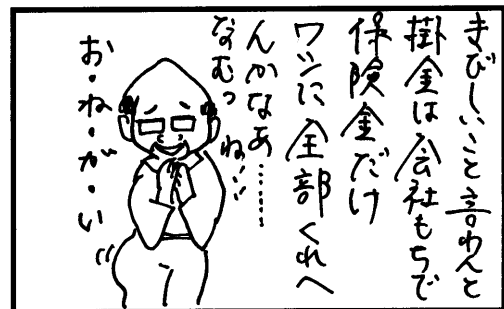 きびしいこと言わんと
掛金は会社もちで
保険金だけ
ワシに全部くれへ
んかなあ………
なむっ ね!!
お・ね・が・い